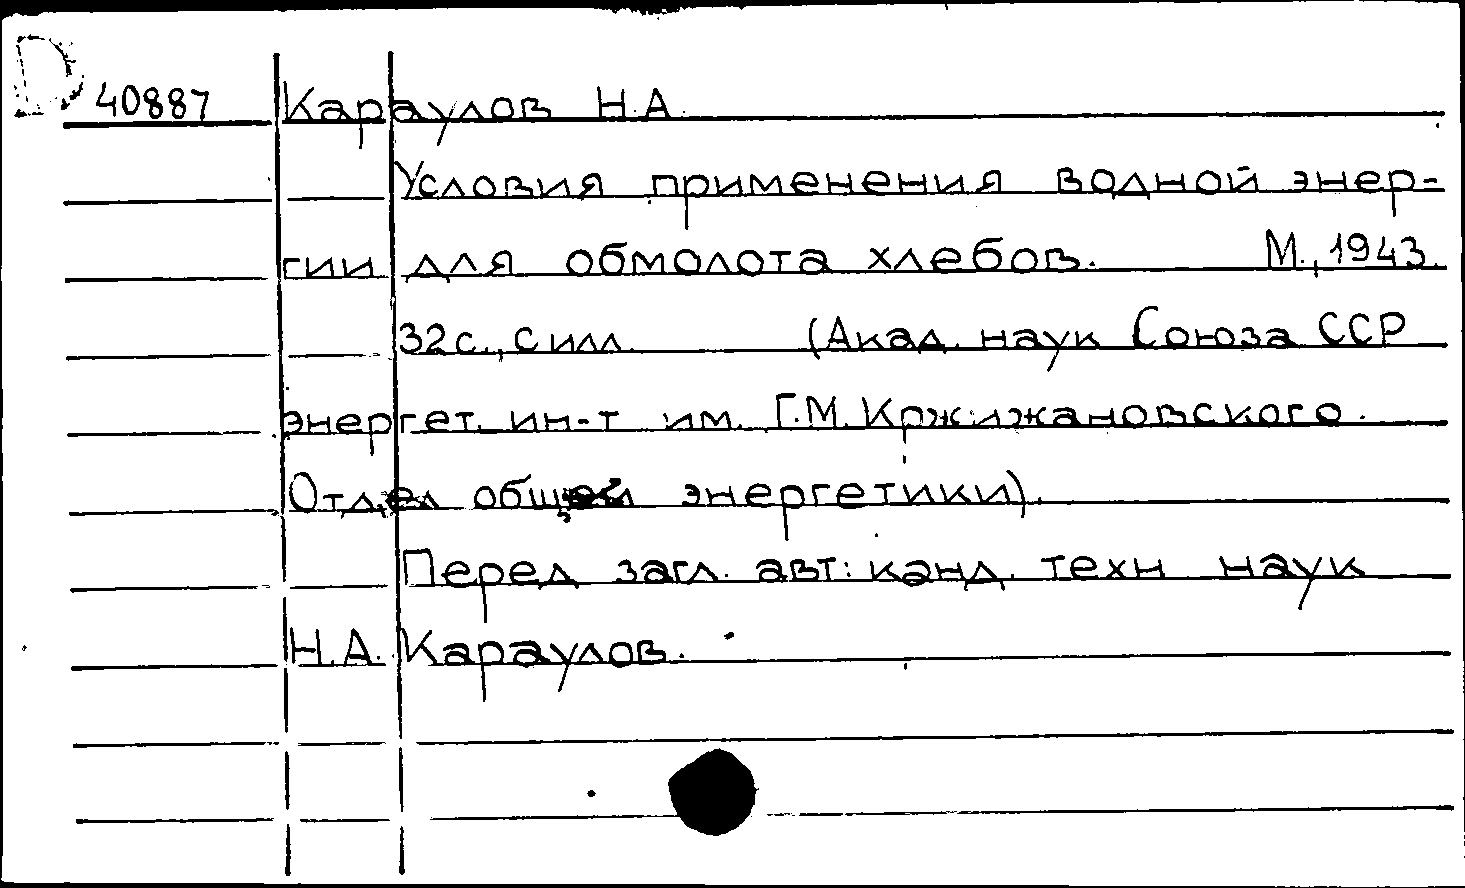 D 40887 Караулов Н.А.
Условия применения водной энер-
гии для обмолота хлебов. М., 1943.
32с., с илл. (Акад. наук Союза ССР
энергет. ин-т им. Г.М. Кржижановского.
Отдел общей энергетики).
Перед загл. авт: канд. техн наук
Н.А. Караулов.